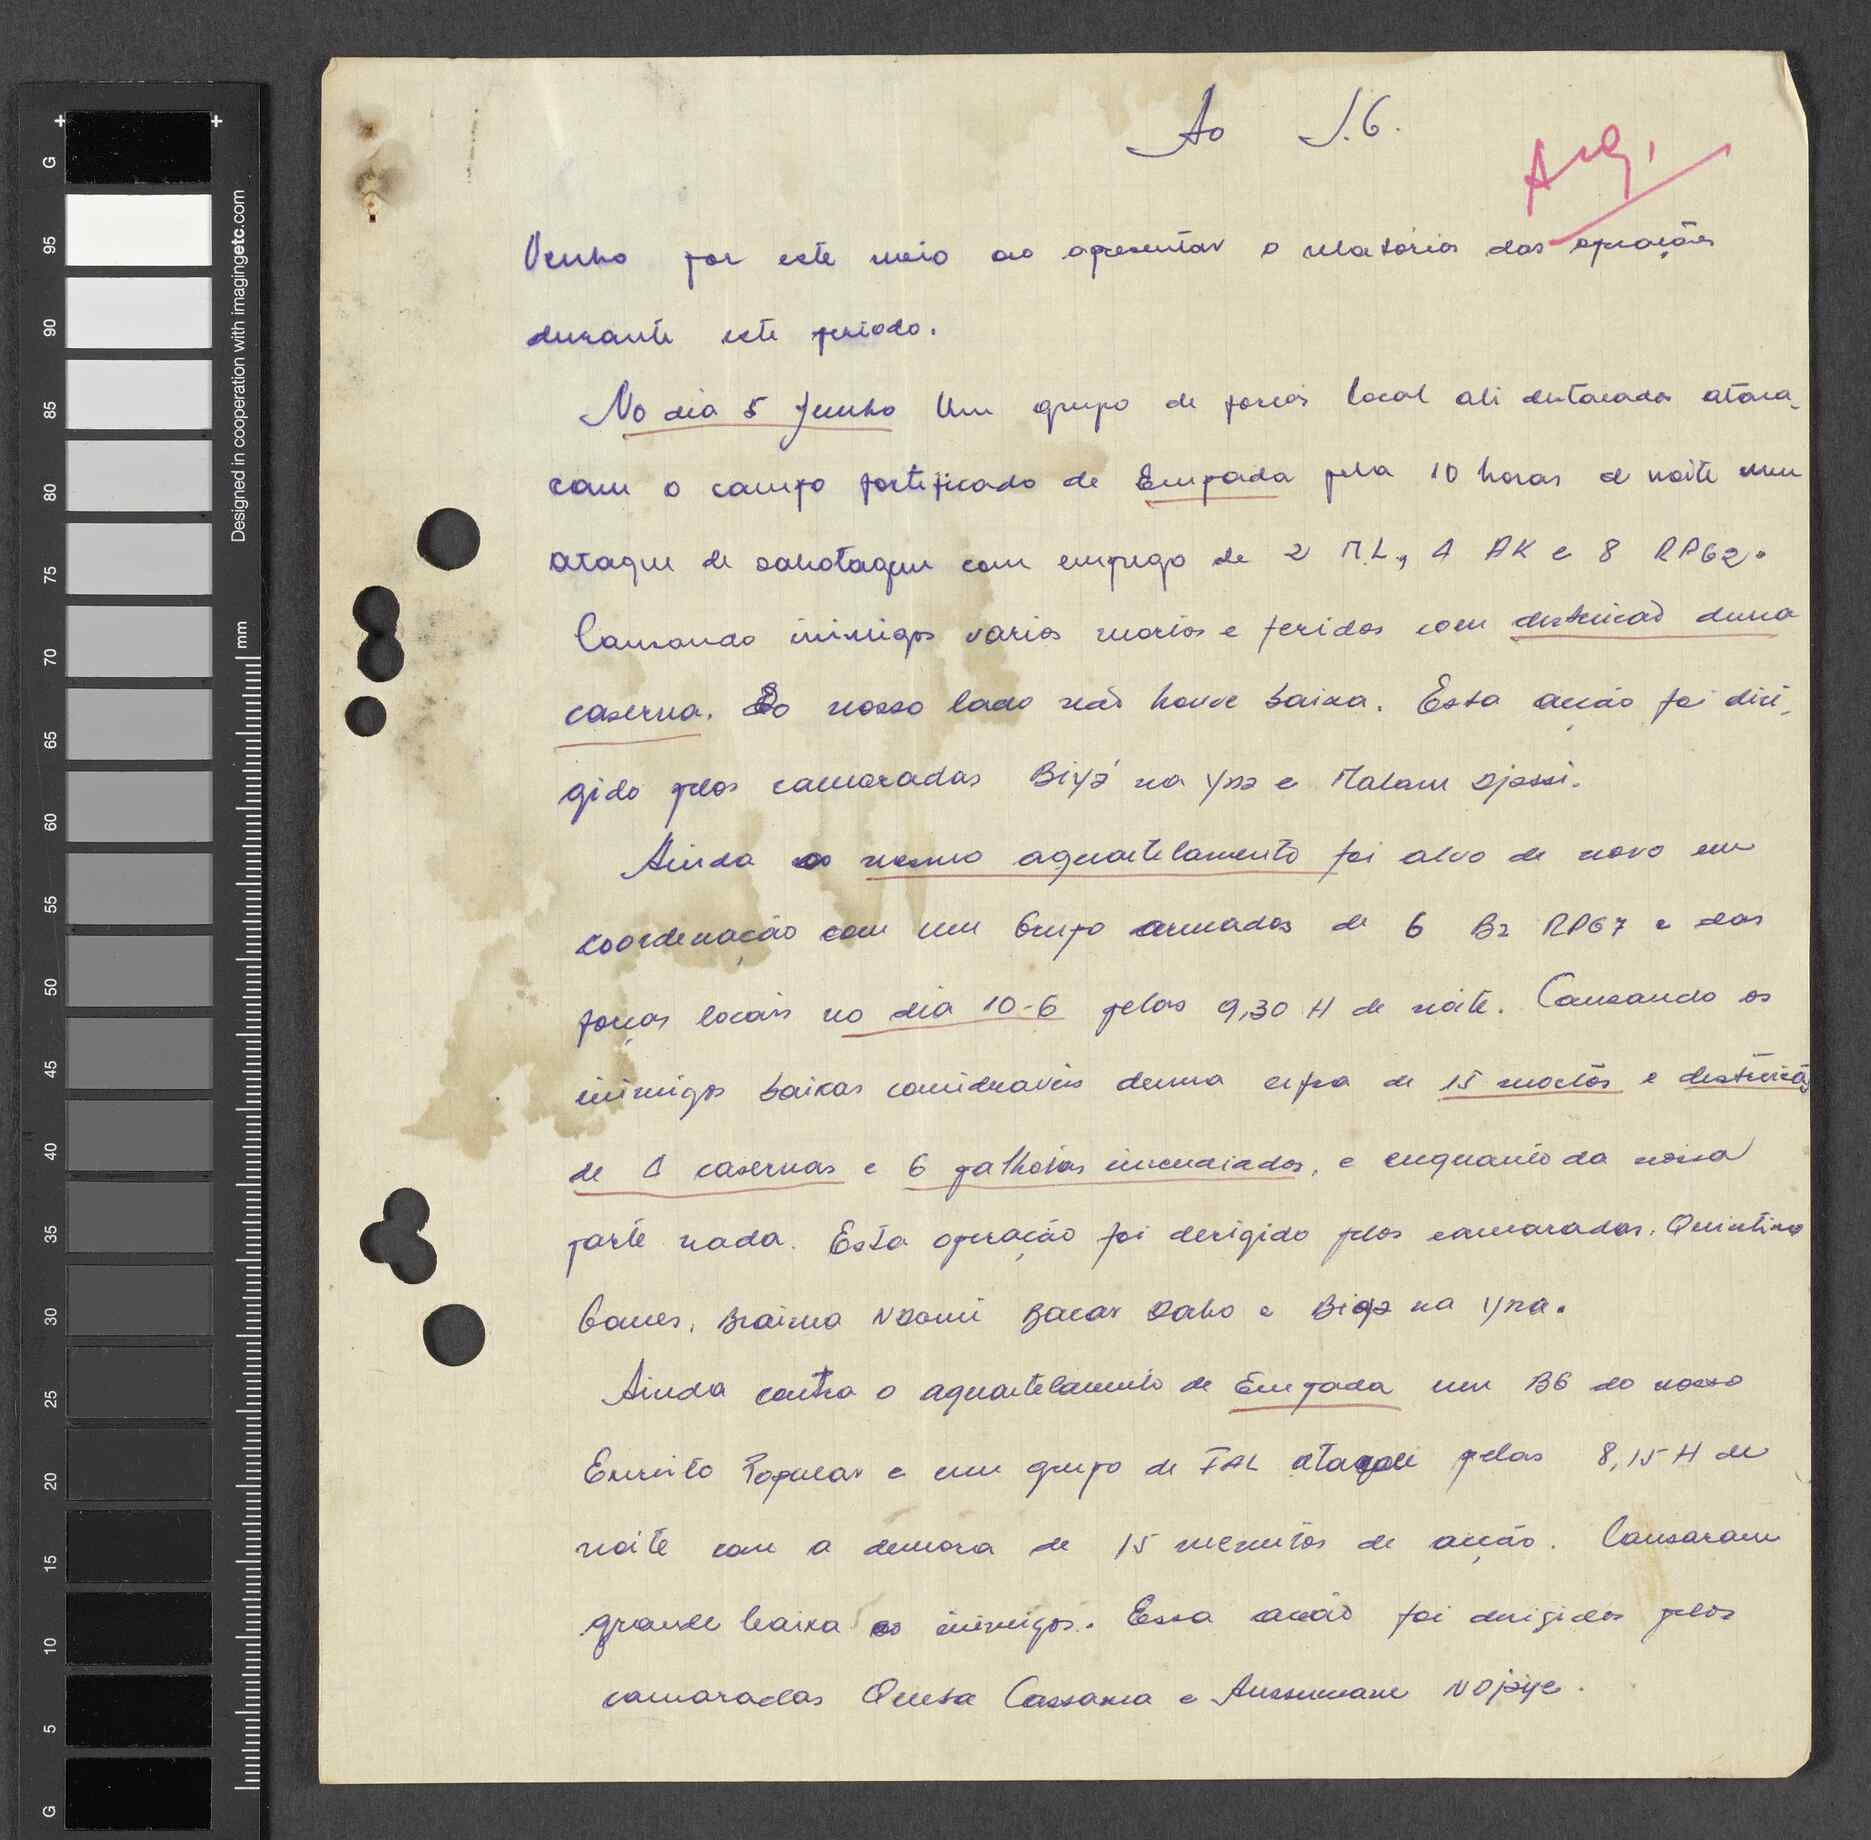 Ao S.G.
Arq.
Venho por este meio ao apresentar o relatório das operações
durante este periodo.
No dia 5 Junho Um grupo de forças local ali destacados ataca-
cam o campo fortificado de Empada pela 10 horas de noite num
ataque de sabotagem com emprego de 2 M.L., 4 AK e 8 RPG2.
Causando inimigos varios mortos e feridos com destruicão duma
caserna. Do nosso lado não houve baixa. Esta acção foi diri-
gido pelos camaradas na Yna e Malam Djassi.
Ainda o mesmo aquartelamento foi alvo de novo em
coordenação com um Grupo armados de 6 Bz RPG7 e das
forças locais no dia 10-6 pelas 9,30 H de noite. Causando os
inimigos baixas consideraveis duma cifra de 15 mortos e destruicão
de 4 casernas e 6 palhotas incendiados, e enquanto da nossa
parte nada. Esta operação foi derigido pelos camaradas. Quintino
Gomes, Braima Bacar Dabo e na Yna.
Ainda contra o aquartelamento de Empada um BG do nosso
Exercito Popular e um grupo de FAL pelas 8,15 H de
noite com a demora de 15 menutos de acção. Causaram
grande baixa ao inimigos. Essa acção foi dirigidos pelos
camaradas Cassama e Aussumane
G 95 90 85 80 75 70 65 60 55 50 45 40 35 30 25 20 15 10 5 G
mm
Designed in cooperation with imagingetc.com